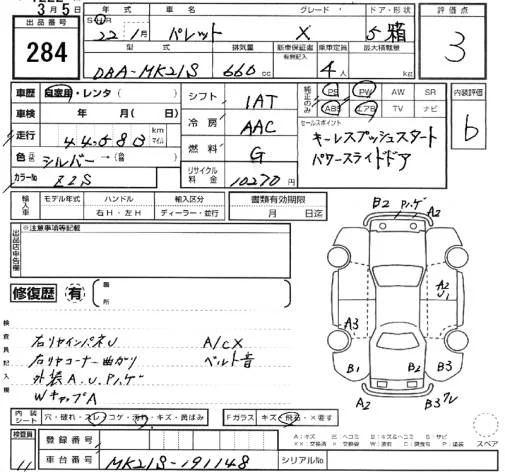 3月5日
出品番号
284
年式 車名 グレード ドア・形状
22年1月 パレット X 5 箱
型式 排気量 新車保証書 有無記入 乗車定員 最大積載量
DBA-MK21S 660cc 4人 kg
評価点
3
車歴 自家用・レンタ( )
車検 年 月( 日)
走行 44,580 km マイル
色 シルバー
カラーNo. Z2S
シフト 1AT
冷房 AAC
燃料 G
リサイクル料金 10270円
純正のみ PS PW AW SR
ABS エアB TV ナビ
セールスポイント
キーレスプッシュスタート
パワースライドドア
内装評価
b
輸入車 モデル年式 ハンドル 輸入区分
右H・左H ディーラー・並行
書類有効期限
月 日迄
出品店申告欄
※注意事項等記載
修復歴 有
箇所
検査員記入欄
右リヤインパネU A/CX
右リヤコーナー曲がり ベルト音
外装A.U.Pハゲ
WキャップA
B2 Pハゲ A2
A2
U1
A3
B1 B2 B3
A2 B3
内装シート 穴・破れ・スレ・コゲ・汚れ・キズ・黄ばみ
Fガラス キズ・飛石・×要す
検査員
登録番号
車台番号 MK21S-191148
シリアルNo.
A:キズ E:ヘコミ B:キズ&ヘコミ S:サビ
スペア